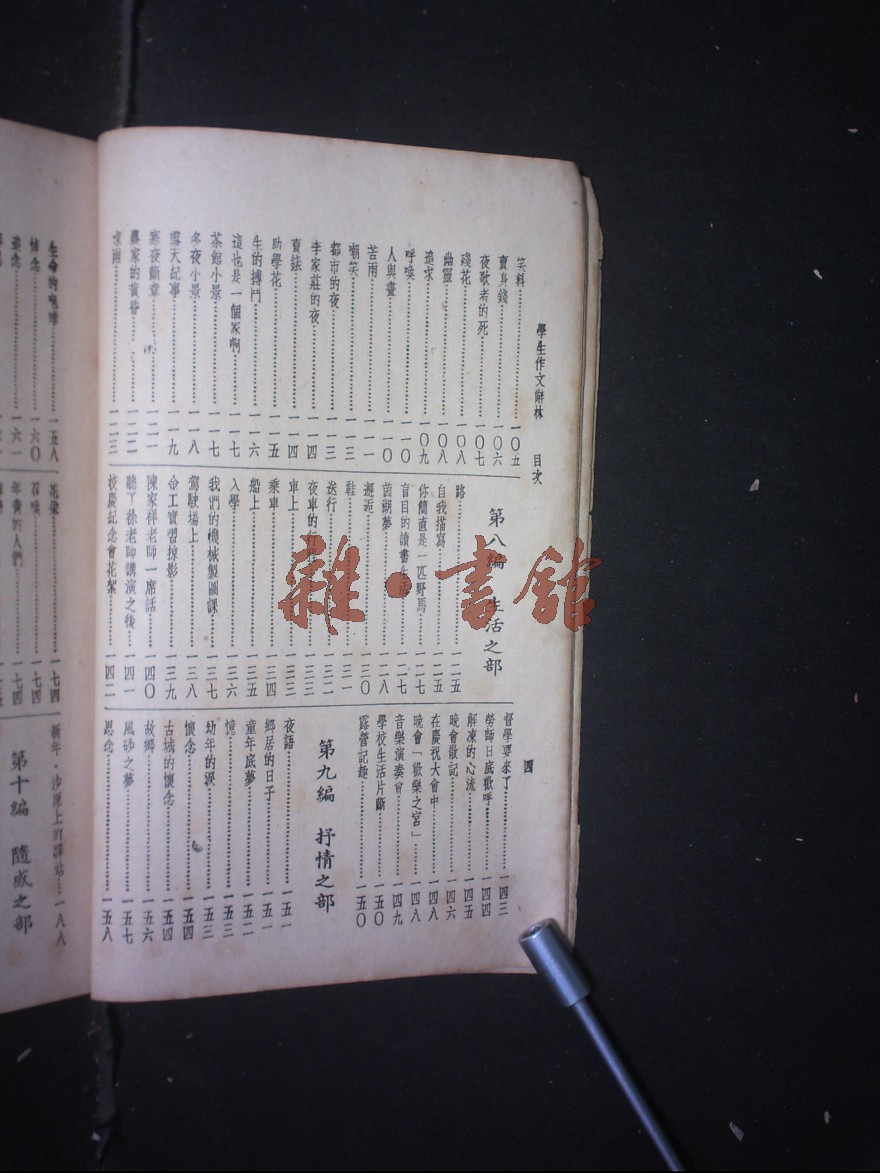 學生作文辭林 目次
四
笑料……一〇五
賣身錢……一〇六
夜歌者的死……一〇七
殘花……一〇八
幽靈……一〇八
追求……一〇九
呼喚……一一〇
人與畫……一一〇
苦雨……一一一
嘲笑……一一三
都市的夜……一一三
李家莊的夜……一一四
賣婊……一一四
助學花……一一五
生的搏鬥……一一六
這也是一個家啊……一一七
茶館小景……一一七
冬夜小景……一一八
雪天紀事……一一九
寒夜斷章……一二一
農家的黃昏……一二二
求雨……一二三
第八編 生活之部
路……一二五
自我描寫……一二五
你簡直是一匹野馬……一二六
盲目的讀書生活……一二七
茵湖夢……一二八
邂逅……一三〇
鞋……一三一
送行……一三二
夜車的行……一三三
車上……一三三
乘車……一三四
船上……一三五
入學……一三六
我們的機械製圖課……一三七
駕駛場上……一三八
金工實習掠影……一三九
陳家祥老師一席話……一四〇
聽了徐老師講演之後……一四一
校慶紀念會花絮……一四二
督學要來了……一四三
勞師日底歡呼……一四四
解凍的心流……一四五
晚會散記……一四六
在慶祝大會中……一四八
晚會「歡樂之宮」……一四八
音樂演奏會……一四九
學校生活片斷……一五〇
露營記趣……一五〇
第九編 抒情之部
夜語……一五一
鄉居的日子……一五一
童年底夢……一五二
憶……一五三
幼年的淚……一五三
懷念……一五四
古城的懷念……一五四
故鄉……一五六
風砂之夢……一五七
思念……一五八
生命的……一五八
悼念……一六〇
追念……一六一
花朵……一七四
召喚……一七四
年青的人們……一七四
新年・沙原上的驛站……一八八
第十編 隨感之部
雜・書館